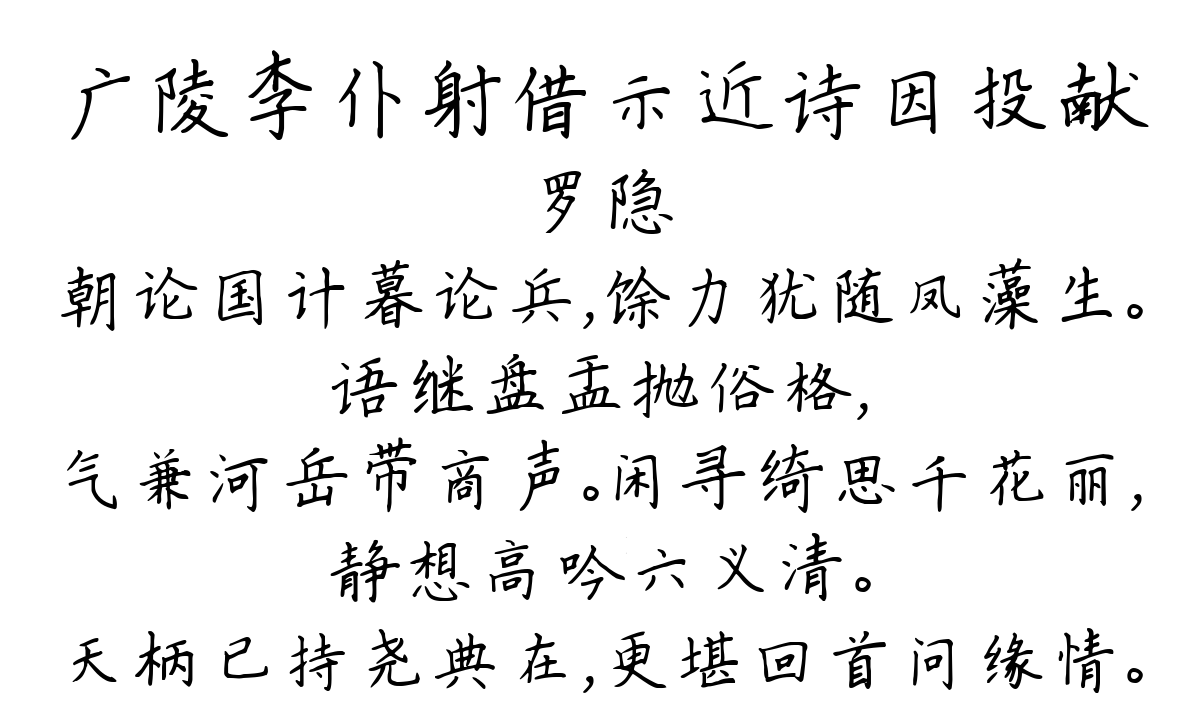 广陵李仆射借示近诗因投献
罗隐
朝论国计暮论兵,馀力犹随凤藻生。
语继盘盂抛俗格,
气兼河岳带商声。闲寻绮思千花丽,
静想高吟六义清。
天柄已持尧典在,更堪回首问缘情。